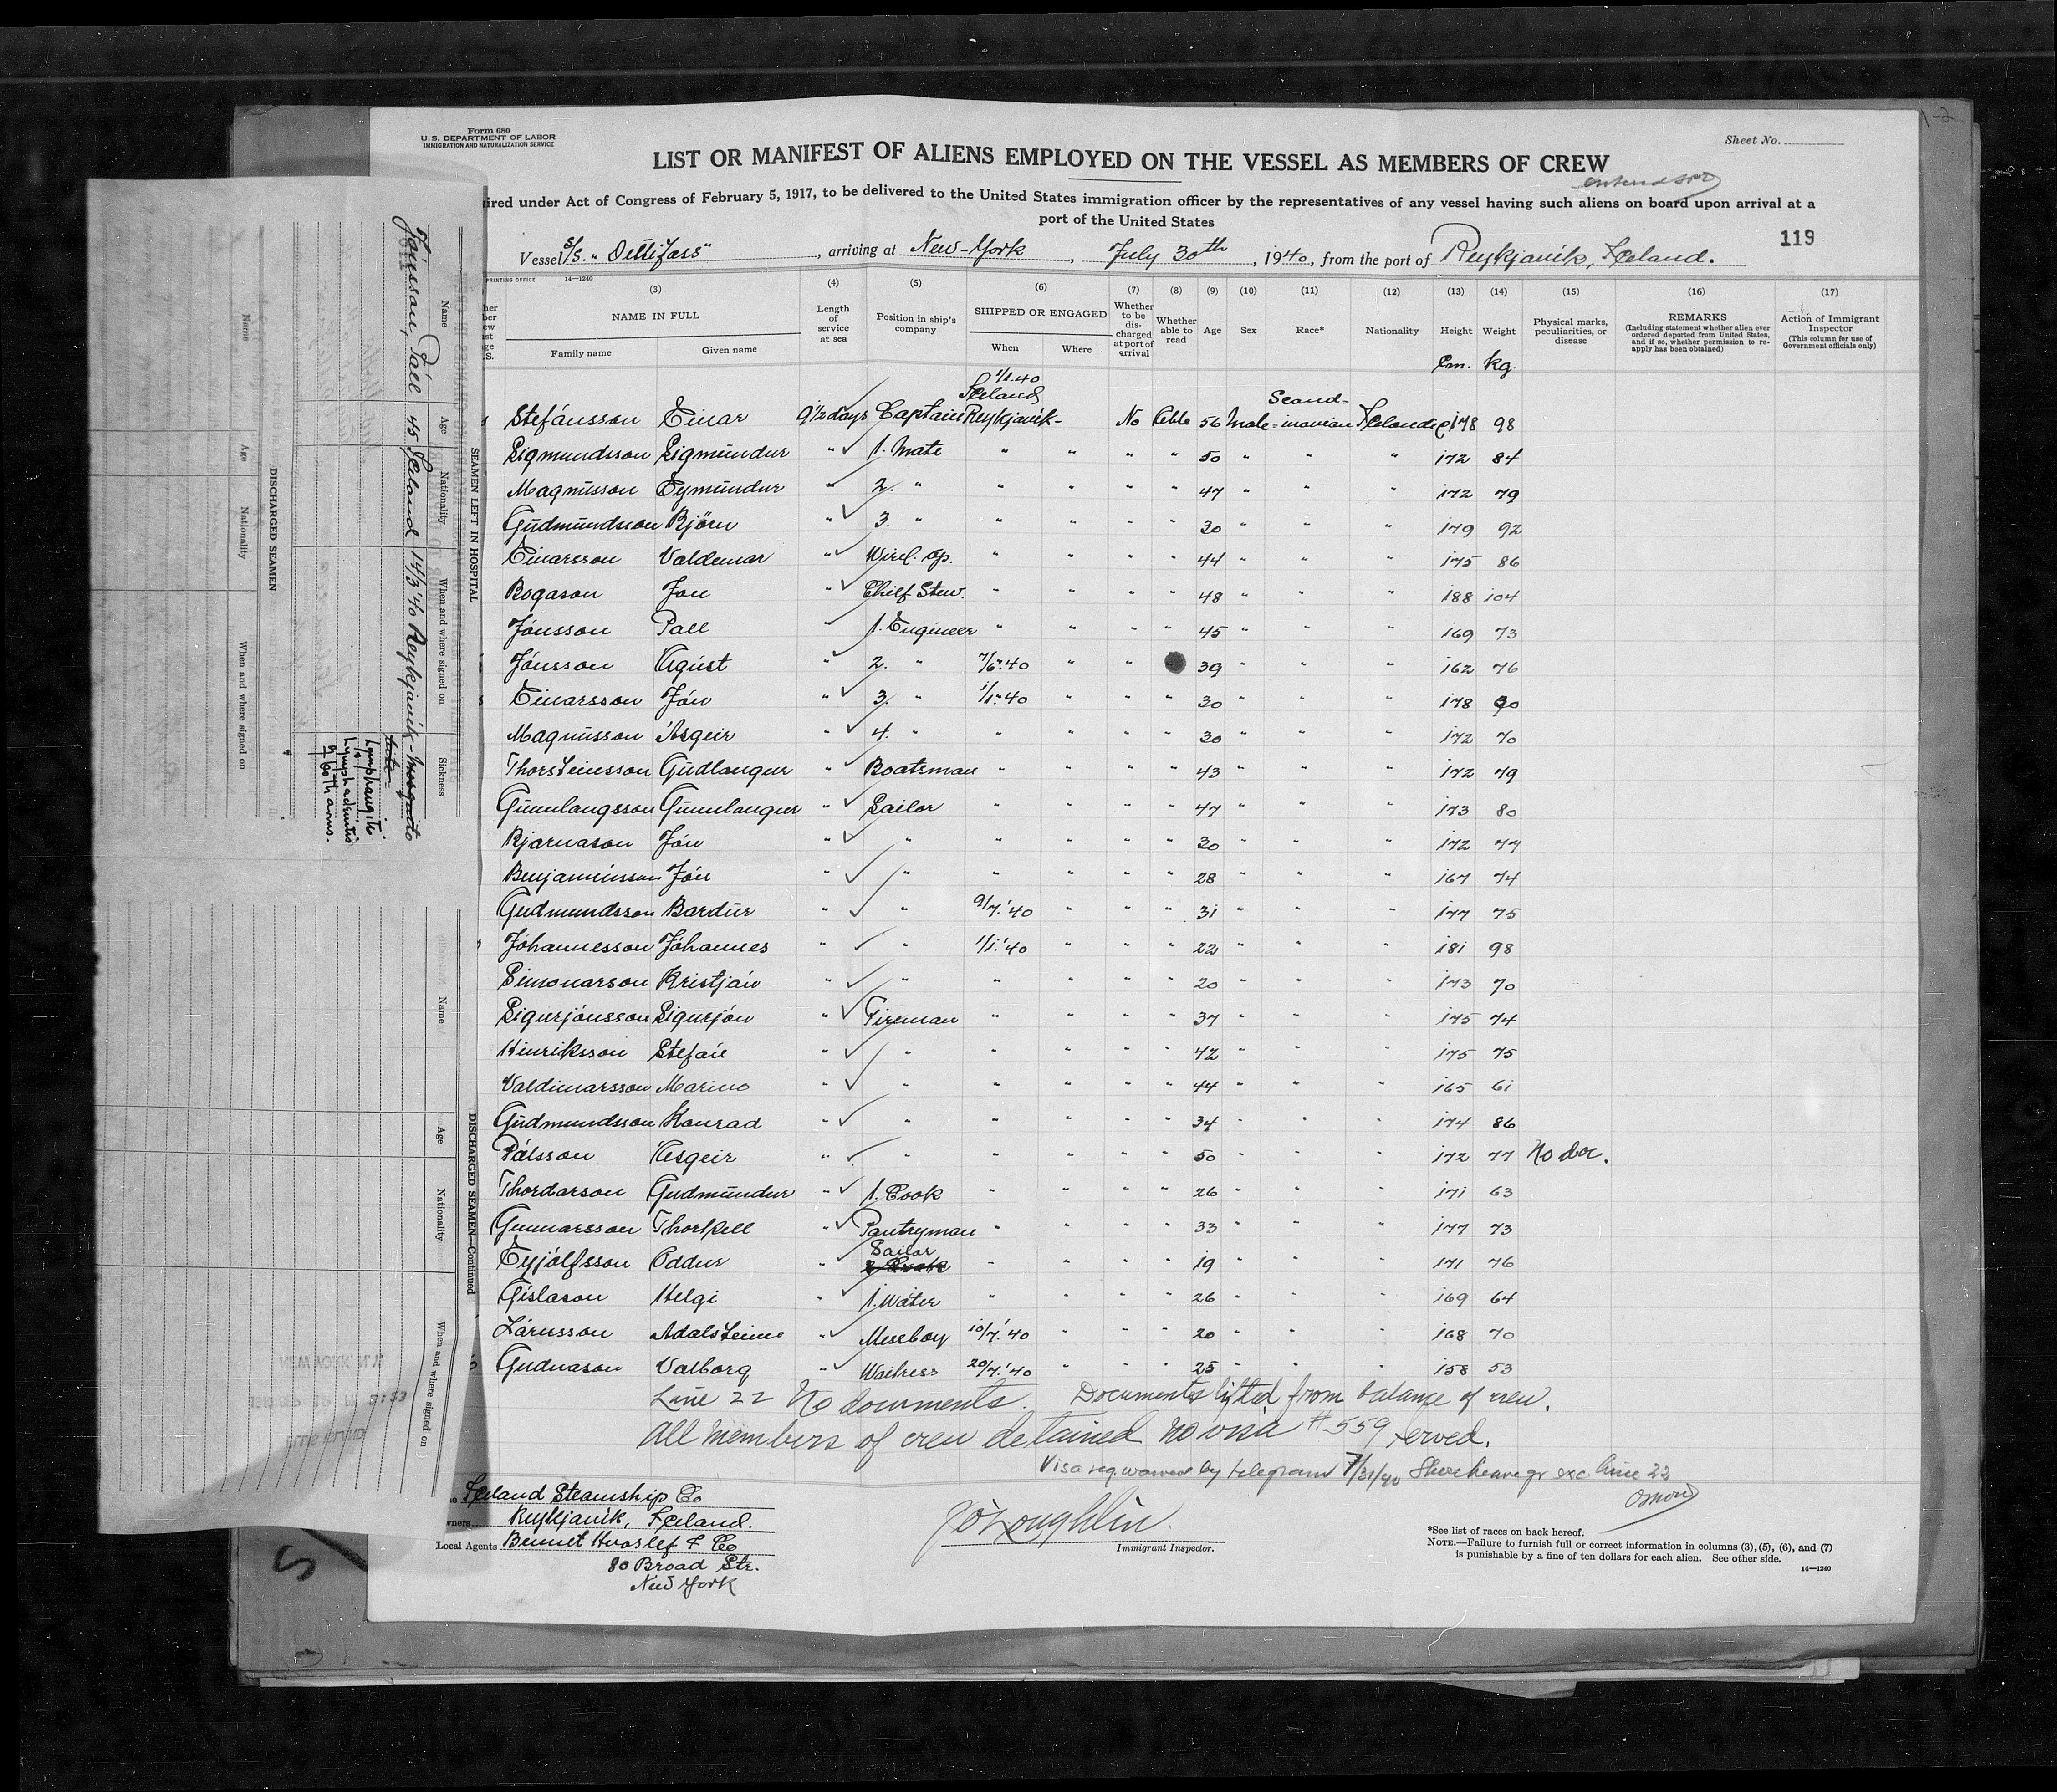 Form 680
U. S. DEPARTMENT OF LABOR
IMMIGRATION AND NATURALIZATION SERVICE
Sheet No.
LIST OR MANIFEST OF ALIENS EMPLOYED ON THE VESSEL AS MEMBERS OF CREW
ired under Act of Congress of February 5, 1917, to be delivered to the United States immigration officer by the representatives of any vessel having such aliens on board upon arrival at a
port of the United States
119
Vessel S/S. "Dettifoss", arriving at New-York, July 30th, 1940, from the port of Reykjavik, Iceland.
PRINTING OFFICE 14—1240
(3) (4) (5) (6) (7) (8) (9) (10) (11) (12) (13) (14) (15) (16) (17)
NAME IN FULL Length of service at sea Position in ship's company SHIPPED OR ENGAGED Whether to be discharged at port of arrival Whether able to read Age Sex Race* Nationality Height Weight Physical marks, peculiarities, or disease REMARKS (Including statement whether alien ever ordered deported from United States, and if so, whether permission to reapply has been obtained) Action of Immigrant Inspector (This column for use of Government officials only)
Family name Given name When Where
Cm. kg.
1/1.40
Iceland Scand=
Stefánsson Einar 9 1/2 days Captain Reykjavik- No Able 56 Male =inavian Icelandic 178 98
Sigmundsson Sigmundur " 1. Mate " " " " 50 " " " 172 84
Magnússon Eymundur " 2. " " " " " 47 " " " 172 79
Gudmundsson Björn " 3. " " " " " 30 " " " 179 92
Einarsson Valdemar " Wirel. op. " " " " 44 " " " 175 86
Bogason Jon " Chief Stew. " " " " 48 " " " 188 104
Jónsson Pall " 1. Engineer " " " " 45 " " " 169 73
Jónsson Agúst " 2. " 7/6.40 " " 39 " " " 162 76
Einarsson Jón " 3. " 1/1.40 " " " 30 " " " 178 90
Magnússon Asgeir " 4. " " " " " 30 " " " 172 70
Thorsteinsson Gudlaugur " Boatsman " " " " 43 " " " 172 79
Gunnlaugsson Gunnlaugur " Sailor " " " " 47 " " " 173 80
Bjarnason Jón " " " " " " 30 " " " 172 77
Benjaminsson Jón " " " " " " 28 " " " 167 74
Gudmundsson Bardur " " 9/7.'40 " " " 31 " " " 177 75
Jóhannesson Jóhannes " " 1/1.'40 " " " 22 " " " 181 98
Simonarson Kristján " " " " " " 20 " " " 173 70
Sigurjónsson Sigurjón " Fireman " " " " 37 " " " 175 74
Hinriksson Stefán " " " " " " 42 " " " 175 75
Valdimarsson Marino " " " " " " 44 " " " 165 61
Gudmundsson Konrad " " " " " " 34 " " " 174 86
Pálsson Asgeir " " " " " " 50 " " " 172 77 No doc.
Thordarson Gudmundur " 1. Cook " " " " 26 " " " 171 63
Gunnarsson Thorkell " Pantryman " " " " 33 " " " 177 73
Eyjólfsson Oddur " Sailor " " " " 19 " " " 171 76
Gislason Helgi " 1. Water " " " " 26 " " " 169 64
Lárusson Adalsteinn " Messboy 10/7.'40 " " " 20 " " " 168 70
Gudnason Valborg " Waitress 20/7.'40 " " " 25 " " " 158 53
Line 22 No documents. Documents lifted from balance of crew.
All members of crew detained No visa #559 served.
Visa req. waived by telegram 7/31/40 Shore leave gr exc. line 22
Iceland Steamship Co
wners Reykjavik, Iceland.
Local Agents Bennet Hvoslef & Co
80 Broad Str.
New York
J O'Loughlin
Immigrant Inspector.
*See list of races on back hereof.
NOTE.—Failure to furnish full or correct information in columns (3), (5), (6), and (7)
is punishable by a fine of ten dollars for each alien. See other side.
14—1240
SEAMEN LEFT IN HOSPITAL
Name Age Nationality When and where signed on Sickness
Jónsson, Páll 45 Iceland 14/3'40 Reykjavik- Mosquito
bite
Lymphangitis
Lymphadenitis
of both arms.
DISCHARGED SEAMEN
Name Age Nationality When and where signed on
DISCHARGED SEAMEN—Continued
Name Age Nationality When and where signed on